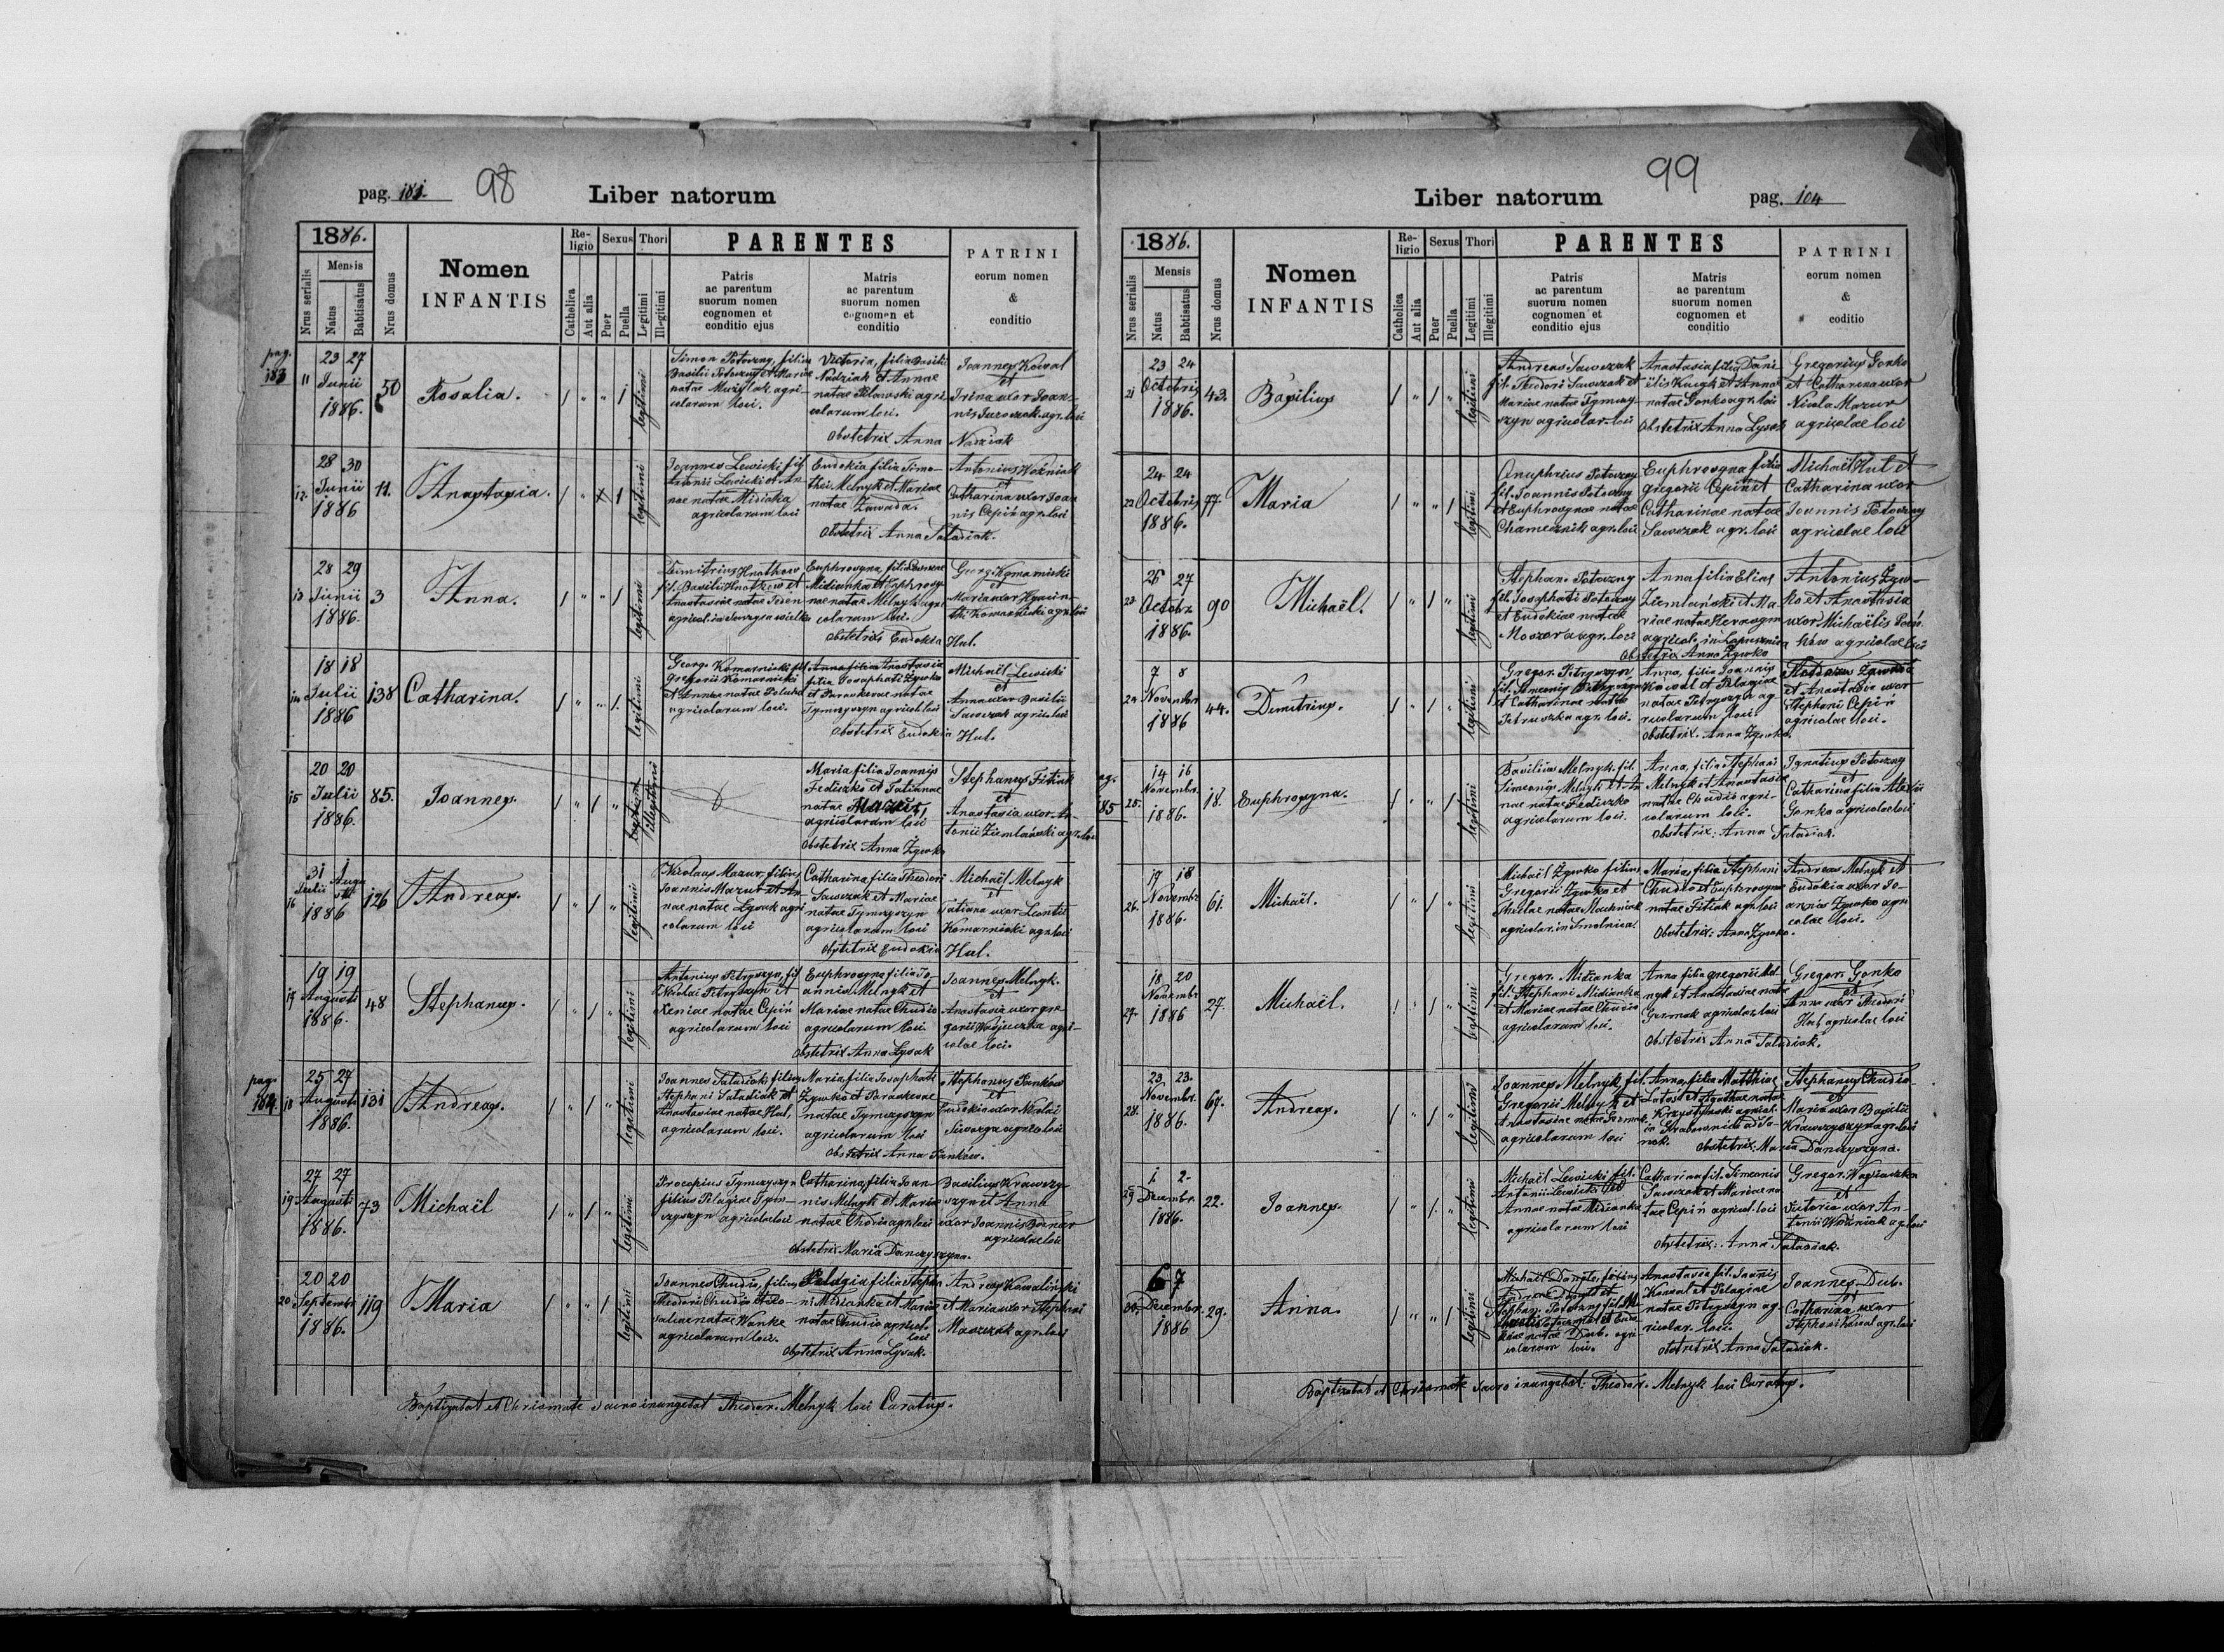 pag. 98 Liber natorum
1886.
Nrus serialis
Mensis
Natus
Babtisatus
Nrus domus
Nomen
INFANTIS
Religio
Catholica
Aut alia
Sexus
Puer
Puella
Thori
Legitimi
Illegitimi
PARENTES
Patris
ac parentum
suorum nomen
cognomen et
conditio ejus
Matris
ac parentum
suorum nomen
cognomen et
conditio
PATRINI
eorum nomen
&
conditio
pag.
183
11
23 27
Junii
1886.
50
Rosalia.
legitimi
Simon Potoczny, filius
Basilii Potoczny et Mariae
natae agri-
colarum loci.
Victoria, filia Basilii
Nadziak et Annae
natae Pilawski agri
colarum loci.
Obstetrix Anna Nadziak
Joannes Kowal
et
Irina uxor Joan-
nis agr. loci
12.
28 30
Junii
1886
11.
Anastasia.
legitimi
Joannes Lewicki fil.
Antonii Lewicki et An-
nae natae Midianka
agricolarum loci
Eudokia filia Timo-
thei Melnyk et Mariae
natae Zawada.
Obstetrix Anna Saladiak.
Antonius Woźniak
et
Catharina uxor Joan
nis Cepiń agr. loci
13
28 29
Junii
1886.
3
Anna.
legitimi
Dumitrius Hnatkow
fil. Basilii Hnatkow et
Anastasiae natae
agricol. in wielka
Euphrosyna, filia
Midianka et Euphrosy-
nae natae Melnyk agri
colarum loci.
Obstetrix Eudokia Hul.
Georg. Komarnicki
et
Maria uxor Hyacin-
thi agr. loci
14
18 18
Julii
1886
138
Catharina.
legitimi
Georg. Komarnicki fil.
Gregorii Komarnicki
et Annae natae
agricolarum loci.
Anna filia Anastasia
filia Josaphati Żywko
et Paraskevae natae
Tymczyszyn agricol. loci
Obstetrix Eudokia Hul.
Michaël Lewicki
et
Anna uxor Basilii
Sawczak agric. loci
15
20 20
Julii
1886.
85.
Joannes.
legitimi
illegitimi
Maria filia Joannis
Fediczko et Tatianae
natae
agricolarum loci
Obstetrix Anna Żywko
Stephanus Fitiak
et
Anastasia uxor An-
tonii Ziemlański agr. loci
16
31 1
Julii Augusti
1886
126
Andreas.
legitimi
Nicolaus Mazur, filius
Joannis Mazur et An-
nae natae Lysak agri
colarum loci
Catharina filia Theodori
Sawczak et Mariae
natae Tymczyszyn
agricolarum loci
Obstetrix Eudokia Hul.
Michaël Melnyk
et
Tatiana uxor Leontii
Komarnicki agr. loci
17
19 19
Augusti
1886.
48
Stephanus.
legitimi
Antonius Petryszyn, fil
Nicolai Petryszyn et
Xeniae natae Cepiń
agricolarum loci
Euphrosyna filia Jo-
annis Melnyk et
Mariae natae Chudio
agricolarum loci.
Obstetrix Anna Lysak
Joannes Melnyk.
et
Anastasia uxor Gre
gorii agri-
colae loci.
pag.
184.
18
25 27
Augusti
1886.
131
Andreas.
legitimi
Joannes Saladiak, filius
Stephani Saladiak et
Anastasiae natae Hul,
agricolarum loci.
Maria, filia Josaphati
Żywko et Paraskevae
natae Tymczyszyn
agricolarum loci
Obstetrix Anna Pańkow.
Stephanus Pańkow
et
Eudokia uxor Nicolai
agric. loci
19
27 27
Augusti
1886.
73
Michaël
legitimi
Procopius Tymczyszyn
filius Pelagiae Tym-
czyszyn agricolae loci
Catharina, filia Joan-
nis Melnyk et Mariae
natae Chudio agr. loci
Obstetrix Maria Danczyszyna.
Basilius Krawczy-
szyn et Anna
uxor Joannis
agricolae loci
20
20 20
Septembr
1886.
119
Maria
legitimi
Joannes Chudio, filius
Theodori Chudio et Ro-
saliae natae Wanke
agricolarum loci.
Pelagia filia Stepha
ni Midianka et Mariae
natae Chudio agricol.
loci
Obstetrix Anna Lysak.
Andreas Kowaliński
et Maria uxor Stephani
Maszczak agr. loci
Baptizabat et Chrismate sacro inungebat Theodor. Melnyk loci Curatus.
Liber natorum 99 pag. 104
1886.
Nrus serialis
Mensis
Natus
Babtisatus
Nrus domus
Nomen
INFANTIS
Religio
Catholica
Aut alia
Sexus
Puer
Puella
Thori
Legitimi
Illegitimi
PARENTES
Patris
ac parentum
suorum nomen
cognomen et
conditio ejus
Matris
ac parentum
suorum nomen
cognomen et
conditio
PATRINI
eorum nomen
&
coditio
21
23 24
Octobris
1886.
43.
Basilius
legitimi
Andreas Sawczak
fil. Theodori Sawczak et
Mariae natae Tymczy-
szyn agricolar. loci
Anastasia filia Dani
ëlis et Annae
natae Gonko agr. loci
Obstetrix Anna Lysak
Gregorius Gonko
et Catharina uxor
Nicolai Mazur
agricolae loci
22
24 24
Octobris
1886.
77
Maria
legitimi
Onuphrius Potoczny
fil. Joannis Potoczny
et Euphrosynae natae
agr. loci
Euphrosyna filia
Gregorii Cepiń et
Catharinae natae
Sawczak agr. loci
Michaël Hul et
Catharina uxor
Joannis Potoczny
agricolae loci
23
26 27
Octobr.
1886.
90
Michaël.
legitimi
Stephan. Potoczny
fil. Josaphati Potoczny
et Eudokiae natae
agr. loci
Anna filia Eliae
Ziemlański et Ma
riae natae
agricol. in Lopusznica
Obstetrix Anna Żywko
Antonius Żyw-
ko et Anastasia
uxor Michaëlis Pań-
kow agricolae loci
24
7 8
Novembr
1886
44.
Dimitrius.
legitimi
Gregor. Petryszyn,
fil. Simeonis Petryszyn
et Catharinae natae
Petruszka agr. loci.
Anna, filia Joannis
Kowal et Pelagiae
natae Petryszyn ag-
ricolarum loci.
Obstetrix. Anna Żywko.
et Anastasia uxor
Stephani Cepiń
agricolae loci.
pag.
185
25.
14 16
Novembr.
1886.
18.
Euphrosyna.
legitimi
Basilius Melnyk. fil.
Simeonis Melnyk et An
nae natae Fediczko
agricolarum loci.
Anna, filia Stephani
Melnyk et Anastasiae
natae Chudio agri-
colarum loci.
Obstetrix: Anna Saladiak.
Ignatius Potoczny
et
Catharina filia Alexii
Gonko agricolae loci
26.
17 18
Novembr
1886.
61.
Michaël.
legitimi
Michaël Żywko filius
Gregorii Żywko et
Theclae natae Machniak
agricolar. in Smolnica.
Maria, filia Stephani
Chudio et Euphrosynae
natae Fitiak agr. loci
Obstetrix: Anna Żywko.
Andreas Melnyk et
Eudokia uxor Jo-
annis Żywko agri
colae loci.
27.
18 20
Novembr
1886
27.
Michaël.
legitimi
Gregor. Midianka
fil. Stephani Midianka
et Mariae natae Chudio
agricolarum loci.
Anna filia Gregorii Mel-
nyk et Anastasiae natae
agricolar. loci
Obstetrix Anna Saladiak.
Gregor. Gonko
et
Anna uxor Theodori
Hul agricolae loci
28.
23. 23.
Novembr.
1886.
67.
Andreas.
legitimi
Joannes Melnyk, fil.
Gregorii Melnyk et
Anastasiae natae
agricolarum loci
Anna, filia Matthiae
et Agathae natae
agricol.
in Grabownica ad Sa-
nok.
Obstetrix: Maria Danczyszyna.
Stephanus Chudio
et
Maria uxor Basilii
Krawczyszyn agr. loci
29
1. 2.
Decembr.
1886.
22.
Joannes.
legitimi
Michaël Lewicki fil.
Antonii Lewicki et
Annae natae Midianka
agricolarum loci
Catharina fil. Simeonis
Sawczak et Mariae na
tae Cepiń agricol. loci
Obstetrix: Anna Saladiak.
Gregor.
et
Victoria uxor An-
tonii Woźniak ag. loci
30.
6 7
Decembr.
1886
29.
Anna.
legitimi
Stephan. Potoczny fil.
natae Dub. agri
colarum loci.
Anastasia fil. Joannis
Kowal et Pelagiae
natae Petryszyn ag-
ricolar. loci.
Obstetrix Anna Saladiak.
Joannes Dub.
et
Catharina uxor
Stephani Kowal agr. loci
Baptizabat et Chrismate sacro inungebat: Theodor. Melnyk loci Curatus.